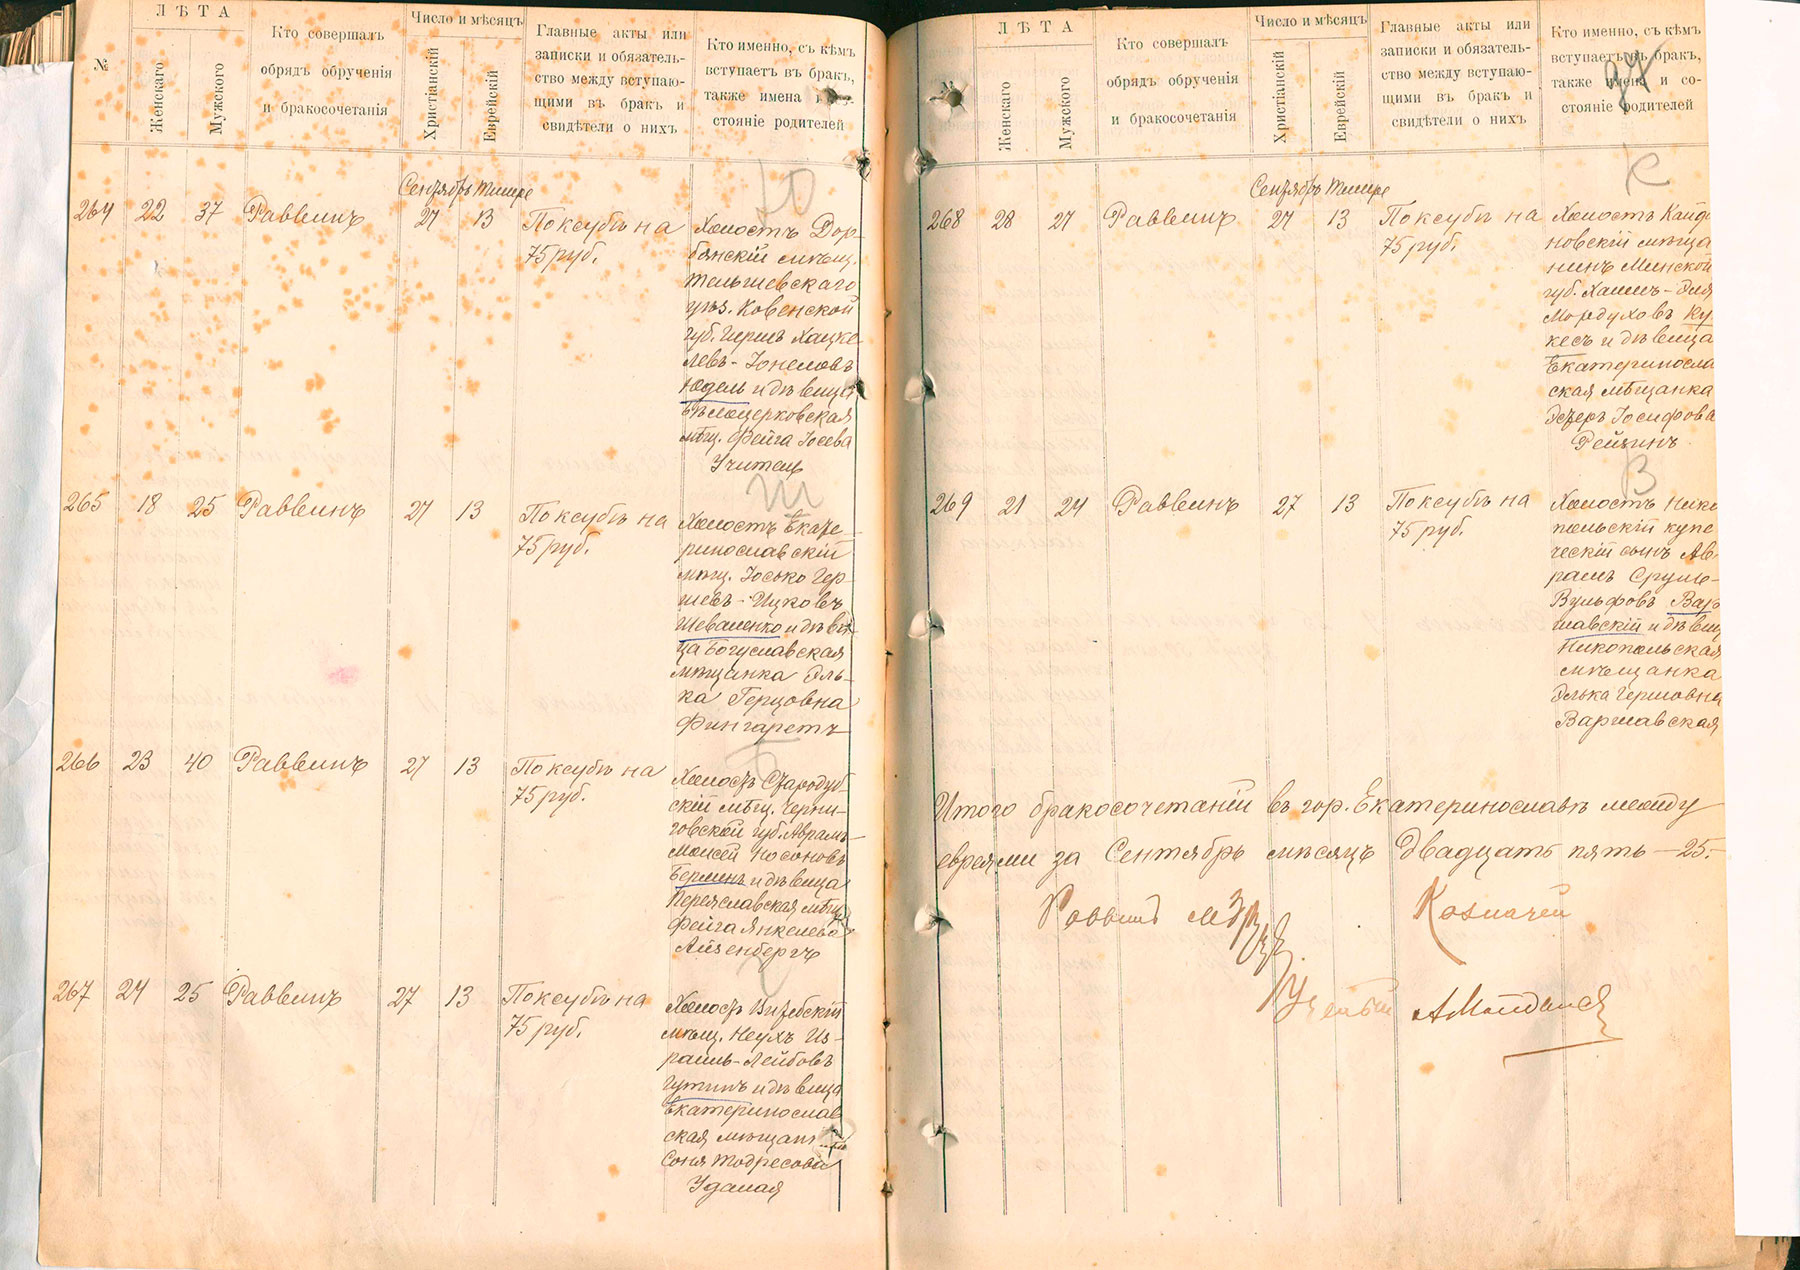 №
ЛѢТА
Женскаго
Мужского
Кто совершалъ
обрядъ обрученія
и бракосочетанія
Число и мѣсяцъ
Христіанскій
Еврейскій
Главные акты или
записки и обязатель-
ство между вступаю-
щими въ бракъ и
свидѣтели о нихъ
Кто именно, съ кѣмъ
вступаетъ въ бракъ,
также имена и со-
стояніе родителей
Ю
Сентябрь Тишре
264 22 37 Раввинъ 27 13 По ксубѣ на
75 руб.
Холостъ Дор-
бянскій мѣщ.
Тельшевскаго
уѣз. Ковенской
губ. Гиршъ Хацке
левъ-
Юдель и дѣвица
Бѣлоцерковская
мѣщ. Фейга Іосева
Учитель
Ш
265 18 25 Раввинъ 27 13 По ксубѣ на
75 руб.
Холостъ Екате-
ринославскій
мѣщ. Іосько Гер-
шевъ-Ицковъ
Шеваленко и дѣви-
ца Богуславская
мѣщанка Эль-
ка Герцовна
Фингаретъ
Б
266 23 40 Раввинъ 27 13 По ксубѣ на
75 руб.
Холостъ Стародуб
скій мѣщ. Черни-
говской губ. Аврамъ-
Моисей Носоновъ
Берлинъ и дѣвица
Переяславская мѣщ.
Фейга Янкелева
Айзенбергъ
267 24 25 Раввинъ 27 13 По ксубѣ на
75 руб.
Холостъ Витебскій
мѣщ. Неухъ Из-
раиль-Лейбовъ
Гутинъ и дѣвица
Екатеринослав
ская мѣщан
Соня Тодресова
Удалая
№
ЛѢТА
Женскаго
Мужского
Кто совершалъ
обрядъ обрученія
и бракосочетанія
Число и мѣсяцъ
Христіанскій
Еврейскій
Главные акты или
записки и обязатель-
ство между вступаю-
щими въ бракъ и
свидѣтели о нихъ
Кто именно, съ кѣмъ
вступаетъ въ бракъ,
также имена и со-
стояніе родителей
К
Сентябрь Тишре
268 28 27 Раввинъ 27 13 По ксубѣ на
75 руб.
Холостъ Кайда
новскій мѣща
нинъ Минской
губ. Хаимъ-Эля
Мордуховъ Ку
кесъ и дѣвица
Екатериносла
ская мѣщанка
Эстеръ Іосифова
Рейзинъ
В
269 21 24 Раввинъ 27 13 По ксубѣ на
75 руб.
Холостъ Нико
польскій купе
ческій сынъ Ав
рамъ Сруль-
Вульфовъ Вар
шавскій и дѣвиц
Никопольская
мѣщанка
Элька Гершовна
Варшавская
Итого бракосочетаній въ гор. Екатеринославѣ между
евреями за Сентябрь мѣсяцъ двадцать пять -25-
Раввинъ
Казначей
Ученый